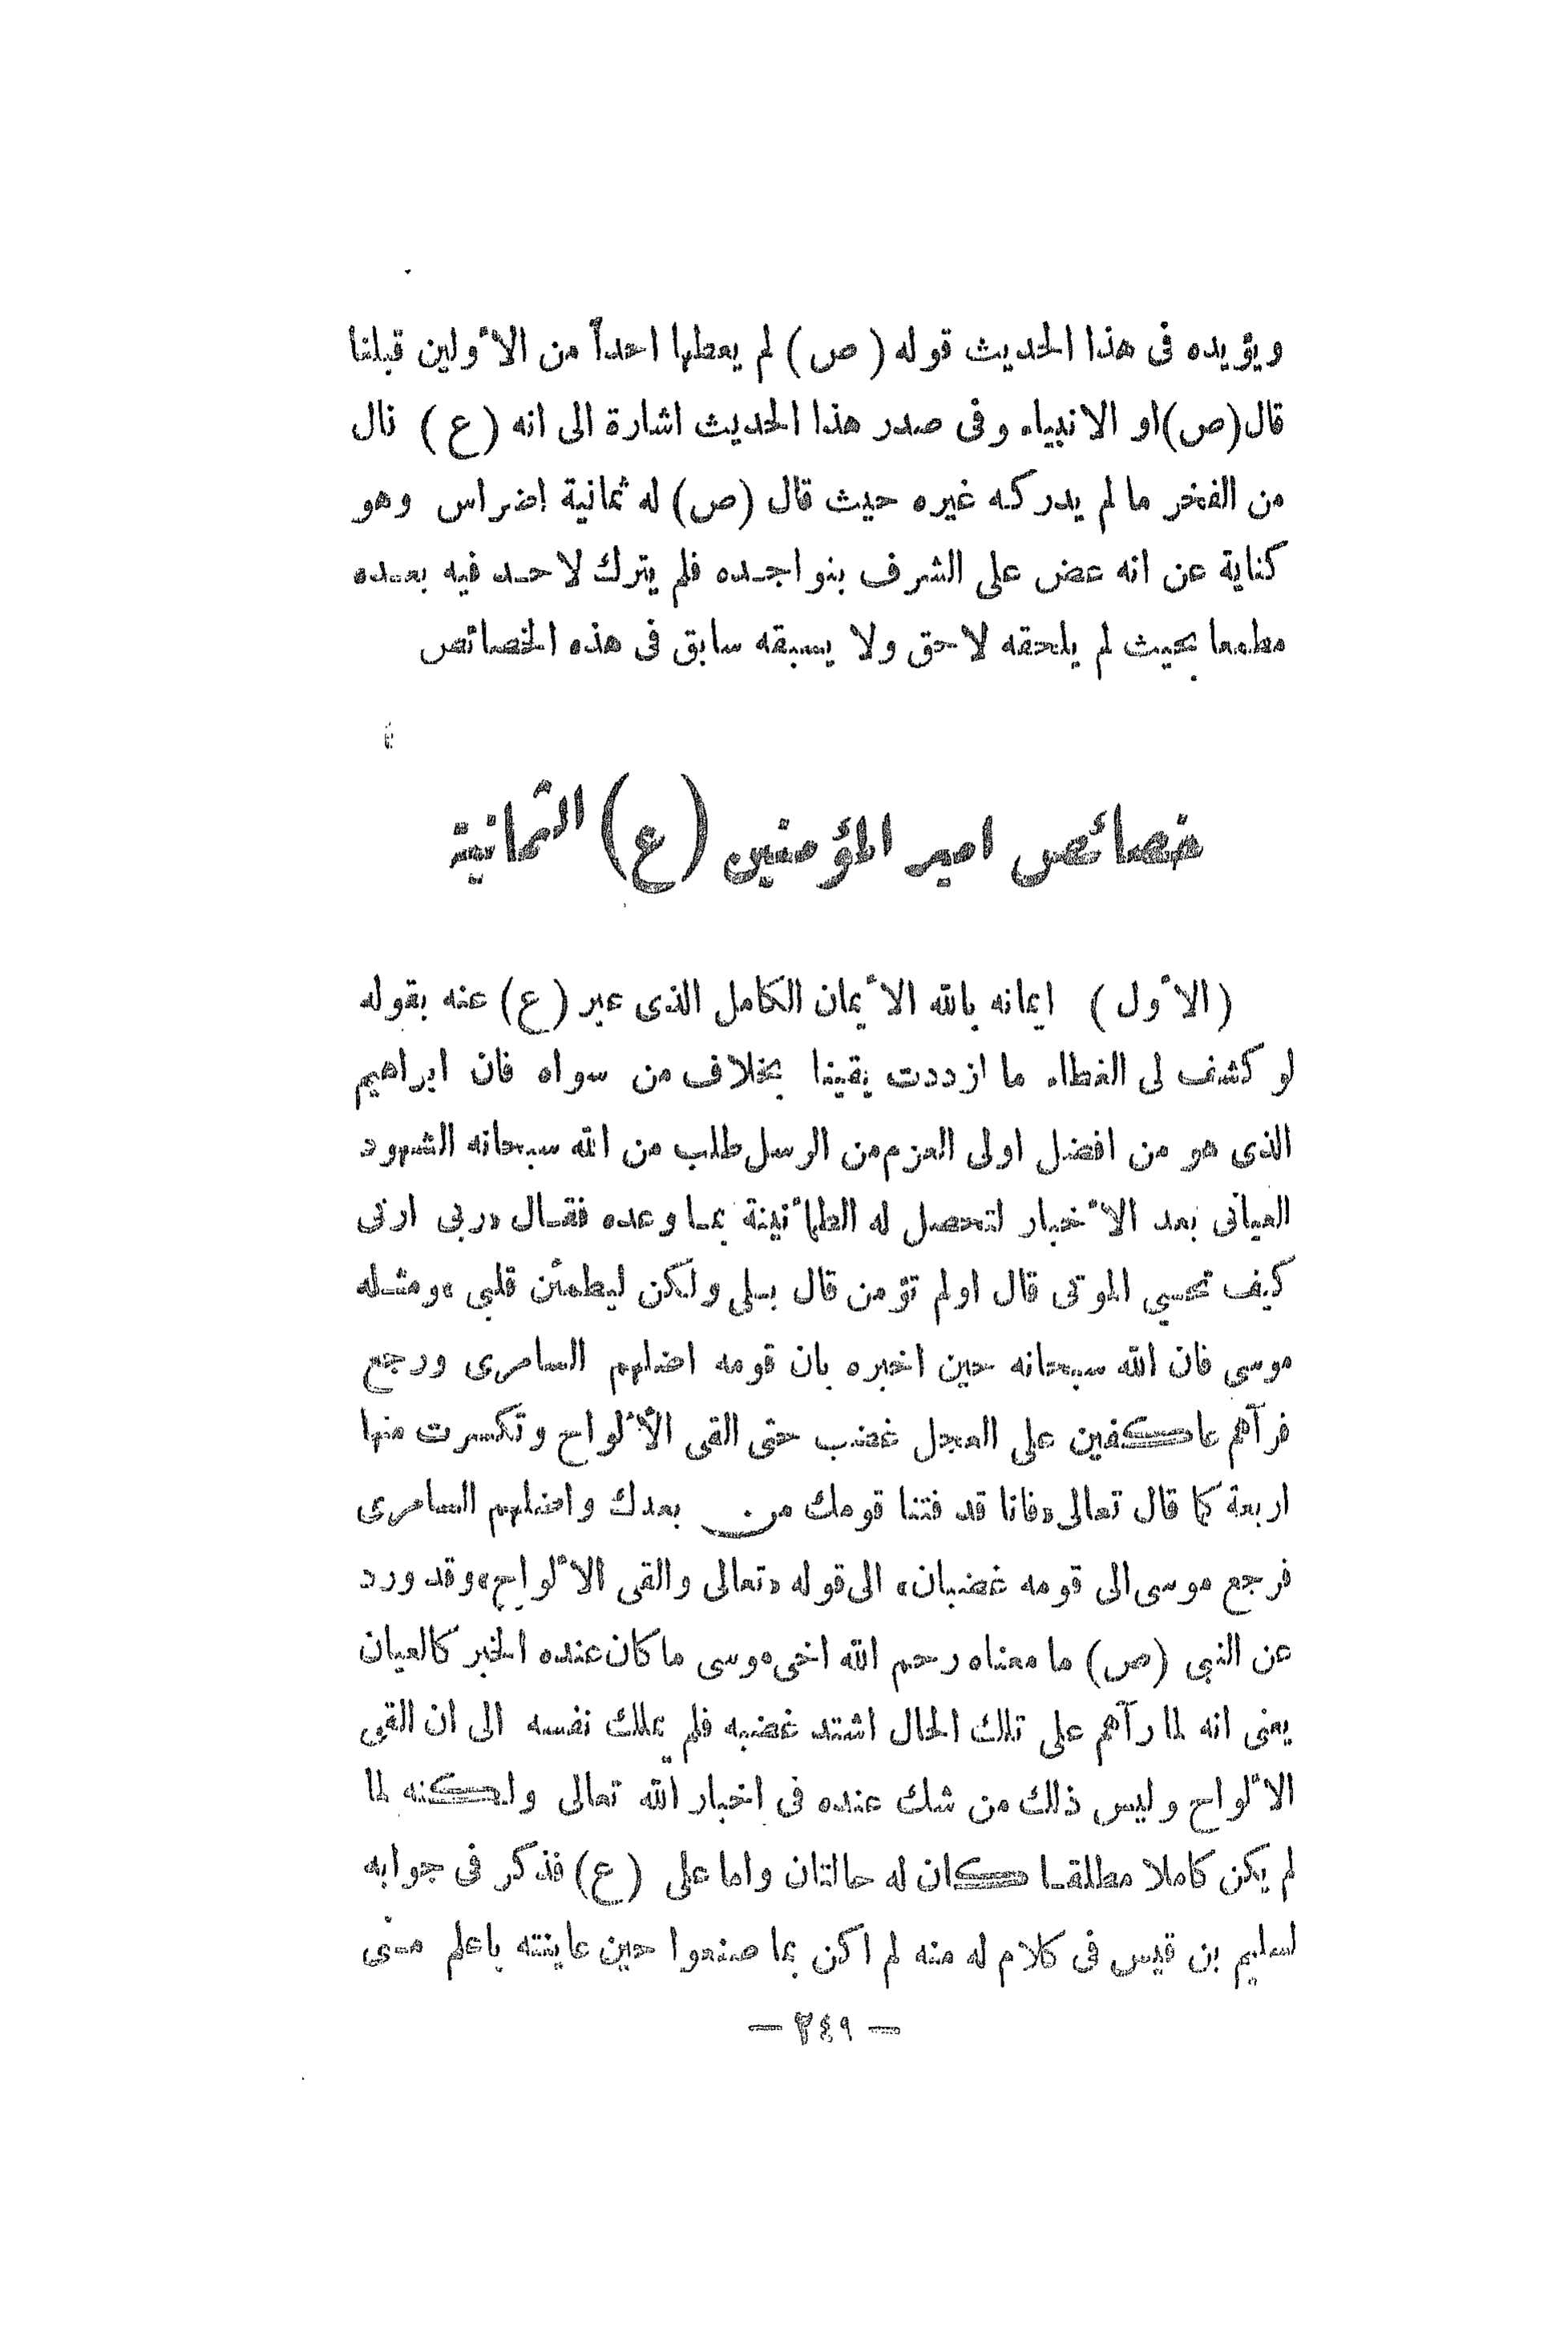 ويؤيده فى هذا الحديث قوله (ص) لم يعطها احداً من الأولين قبلنا
قال(ص)او الانبياء وفى صدر هذا الحديث اشارة الى انه (ع) نال
من الفخر ما لم يدركه غيره حيث قال (ص) له ثمانية اضراس وهو
كناية عن انه عض على الشرف بنواجده فلم يترك لاحد فيه بعده
مطمعا بحيث لم يلحقه لاحق ولا يسبقه سابق فى هذه الخصائص
خصائص امير المؤمنين (ع) الثمانية
(الأول) ايمانه بالله الأيمان الكامل الذى عبر (ع) عنه بقوله
لو كشف لى الغطاء ما ازددت يقينا بخلاف من سواه فان ابراهيم
الذى هو من افضل اولى العزم من الرسل طلب من الله سبحانه الشهود
العيانى بعد الأخبار لتحصل له الطمأنينة بما وعده فقال «ربى ارنى
كيف تحيي الموتى قال اولم تؤمن قال بلى ولكن ليطمئن قلبي» ومثله
موسى فان الله سبحانه حين اخبره بان قومه اضلهم السامرى ورجع
فرآهم عاكفين على العجل غضب حتى القى الألواح وتكسرت منها
اربعة كما قال تعالى «فانا قد فتنا قومك من بعدك واضلهم السامرى
فرجع موسى الى قومه غضبان» الى قوله «تعالى والقى الألواح» وقد ورد
عن النبي (ص) ما معناه رحم الله اخى موسى ما كان عنده الخبر كالعيان
يعنى انه لما رآهم على تلك الحال اشتد غضبه فلم يملك نفسه الى ان القى
الألواح وليس ذلك من شك عنده فى اخبار الله تعالى ولكنه لما
لم يكن كاملا مطلقا كان له حالتان واما على (ع) فذكر فى جوابه
لسليم بن قيس فى كلام له منه لم اكن بما صنعوا حين عاينته باعلم منى
— ٢٤٩ —